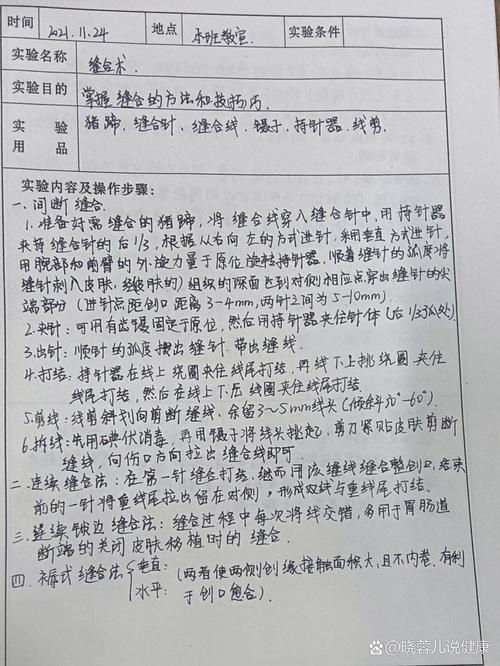 时间 2021.11.24 地点 本班教室. 实验条件
实验名称 缝合术.
实验目的 掌握缝合的方法和技巧
实验用品 猪蹄、缝合针、缝合线、镊子、持针器、线剪.
实验内容及操作步骤:
一.间断缝合.
1.准备好需缝合的猪蹄,将缝合线穿入缝合针中,用持针器
夹持缝合针的后1/3,根据从右向左的方式进针,采用垂直方式进针,
用腕部和前臂的外旋力量于原位旋转持针器,顺着缝针的弧度将
缝针刺入皮肤,经皮肤的组织的深面达到对侧相应点穿出缝针的尖
端部分(进针点距创口距离3-4mm,两针之间为5-10mm).
2.夹针:可用有齿镊固定于原位,然后用持针器夹住针体(后1/3弧处)
3.出针:顺针的弧度拔出缝针.带出缝线.
4.打结:持针器在线上绕圈夹住线尾打结,再线下上挑绕圆夹住
线尾打结,然后在线上下压线圆夹住线尾打结.
5.剪线:线剪斜划向剪断缝线,余留3~5mm线头(倾斜50°-60°).
6.拆线:先用碘伏消毒,再用镊子将线头挑起,剪刀紧贴皮肤剪断
缝线,向伤口方向拉出缝合线即可.
二.连续缝合法:在第一针缝合打结,继而用该缝线缝合整创口,结束
前的一针将重线尾拉出留在对侧,形成双线与重线尾打结.
三.连续锁边缝合法:缝合过程中每次将线交错,多用于胃肠道
断端的关闭皮肤移植时的缝合.
四.褥式缝合法 垂直: (两者使两侧创缘接触面积大,且不内卷.有利
水平: 于创口愈合).
百家号/晓蓉儿说健康